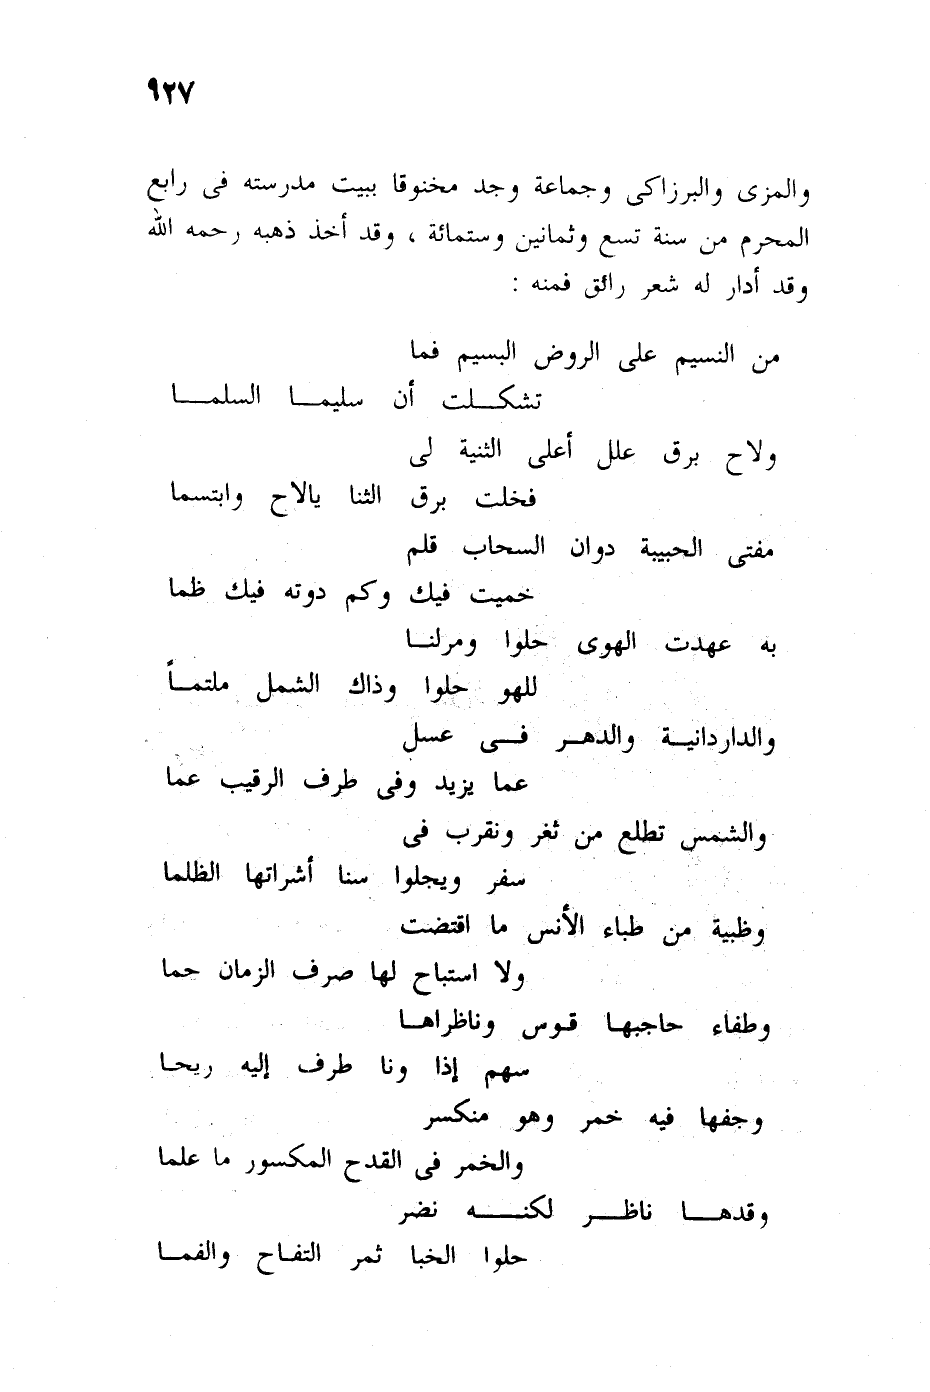 ٩٢٧
والمزى والبرزاكى وجماعة وجد مخنوقا ببيت مدرسته فى رابع
المحرم من سنة تسع وثمانين وستمائة ، وقد أخذ ذهبه رحمه الله
وقد أدار له شعر رائق فمنه :
من النسيم على الروض البسيم فما
تشكـــلت أن سليمـــا السلمـــا
ولاح برق علل أعلى الثنية لى
فخلت برق الثنا يالاح وابتسما
مفتى الحبيبة دوان السحاب قلم
خميت فيك وكم دوته فيك ظما
به عهدت الهوى حلوا ومرلنــا
للهو حلوا وذاك الشمل ملتمــاً
والداردانيــة والدهــر فــى عسل
عما يزيد وفى طرف الرقيب عما
والشمس تطلع من ثغر ونقرب فى
سفر ويجلوا سنا أشراتها الظلما
وظبية من طباء الأنس ما اقتضت
ولا استباح لها صرف الزمان حما
وطفاء حاجبهـا قـوس وناظراهــا
سهم إذا ونا طرف إليه ريحـا
وجفها فيه خمر وهو منكسر
والخمر فى القدح المكسور ما علما
وقدهـــا ناظــر لكنــــه نضر
حلوا الخبا ثمر التفـاح والفمــا